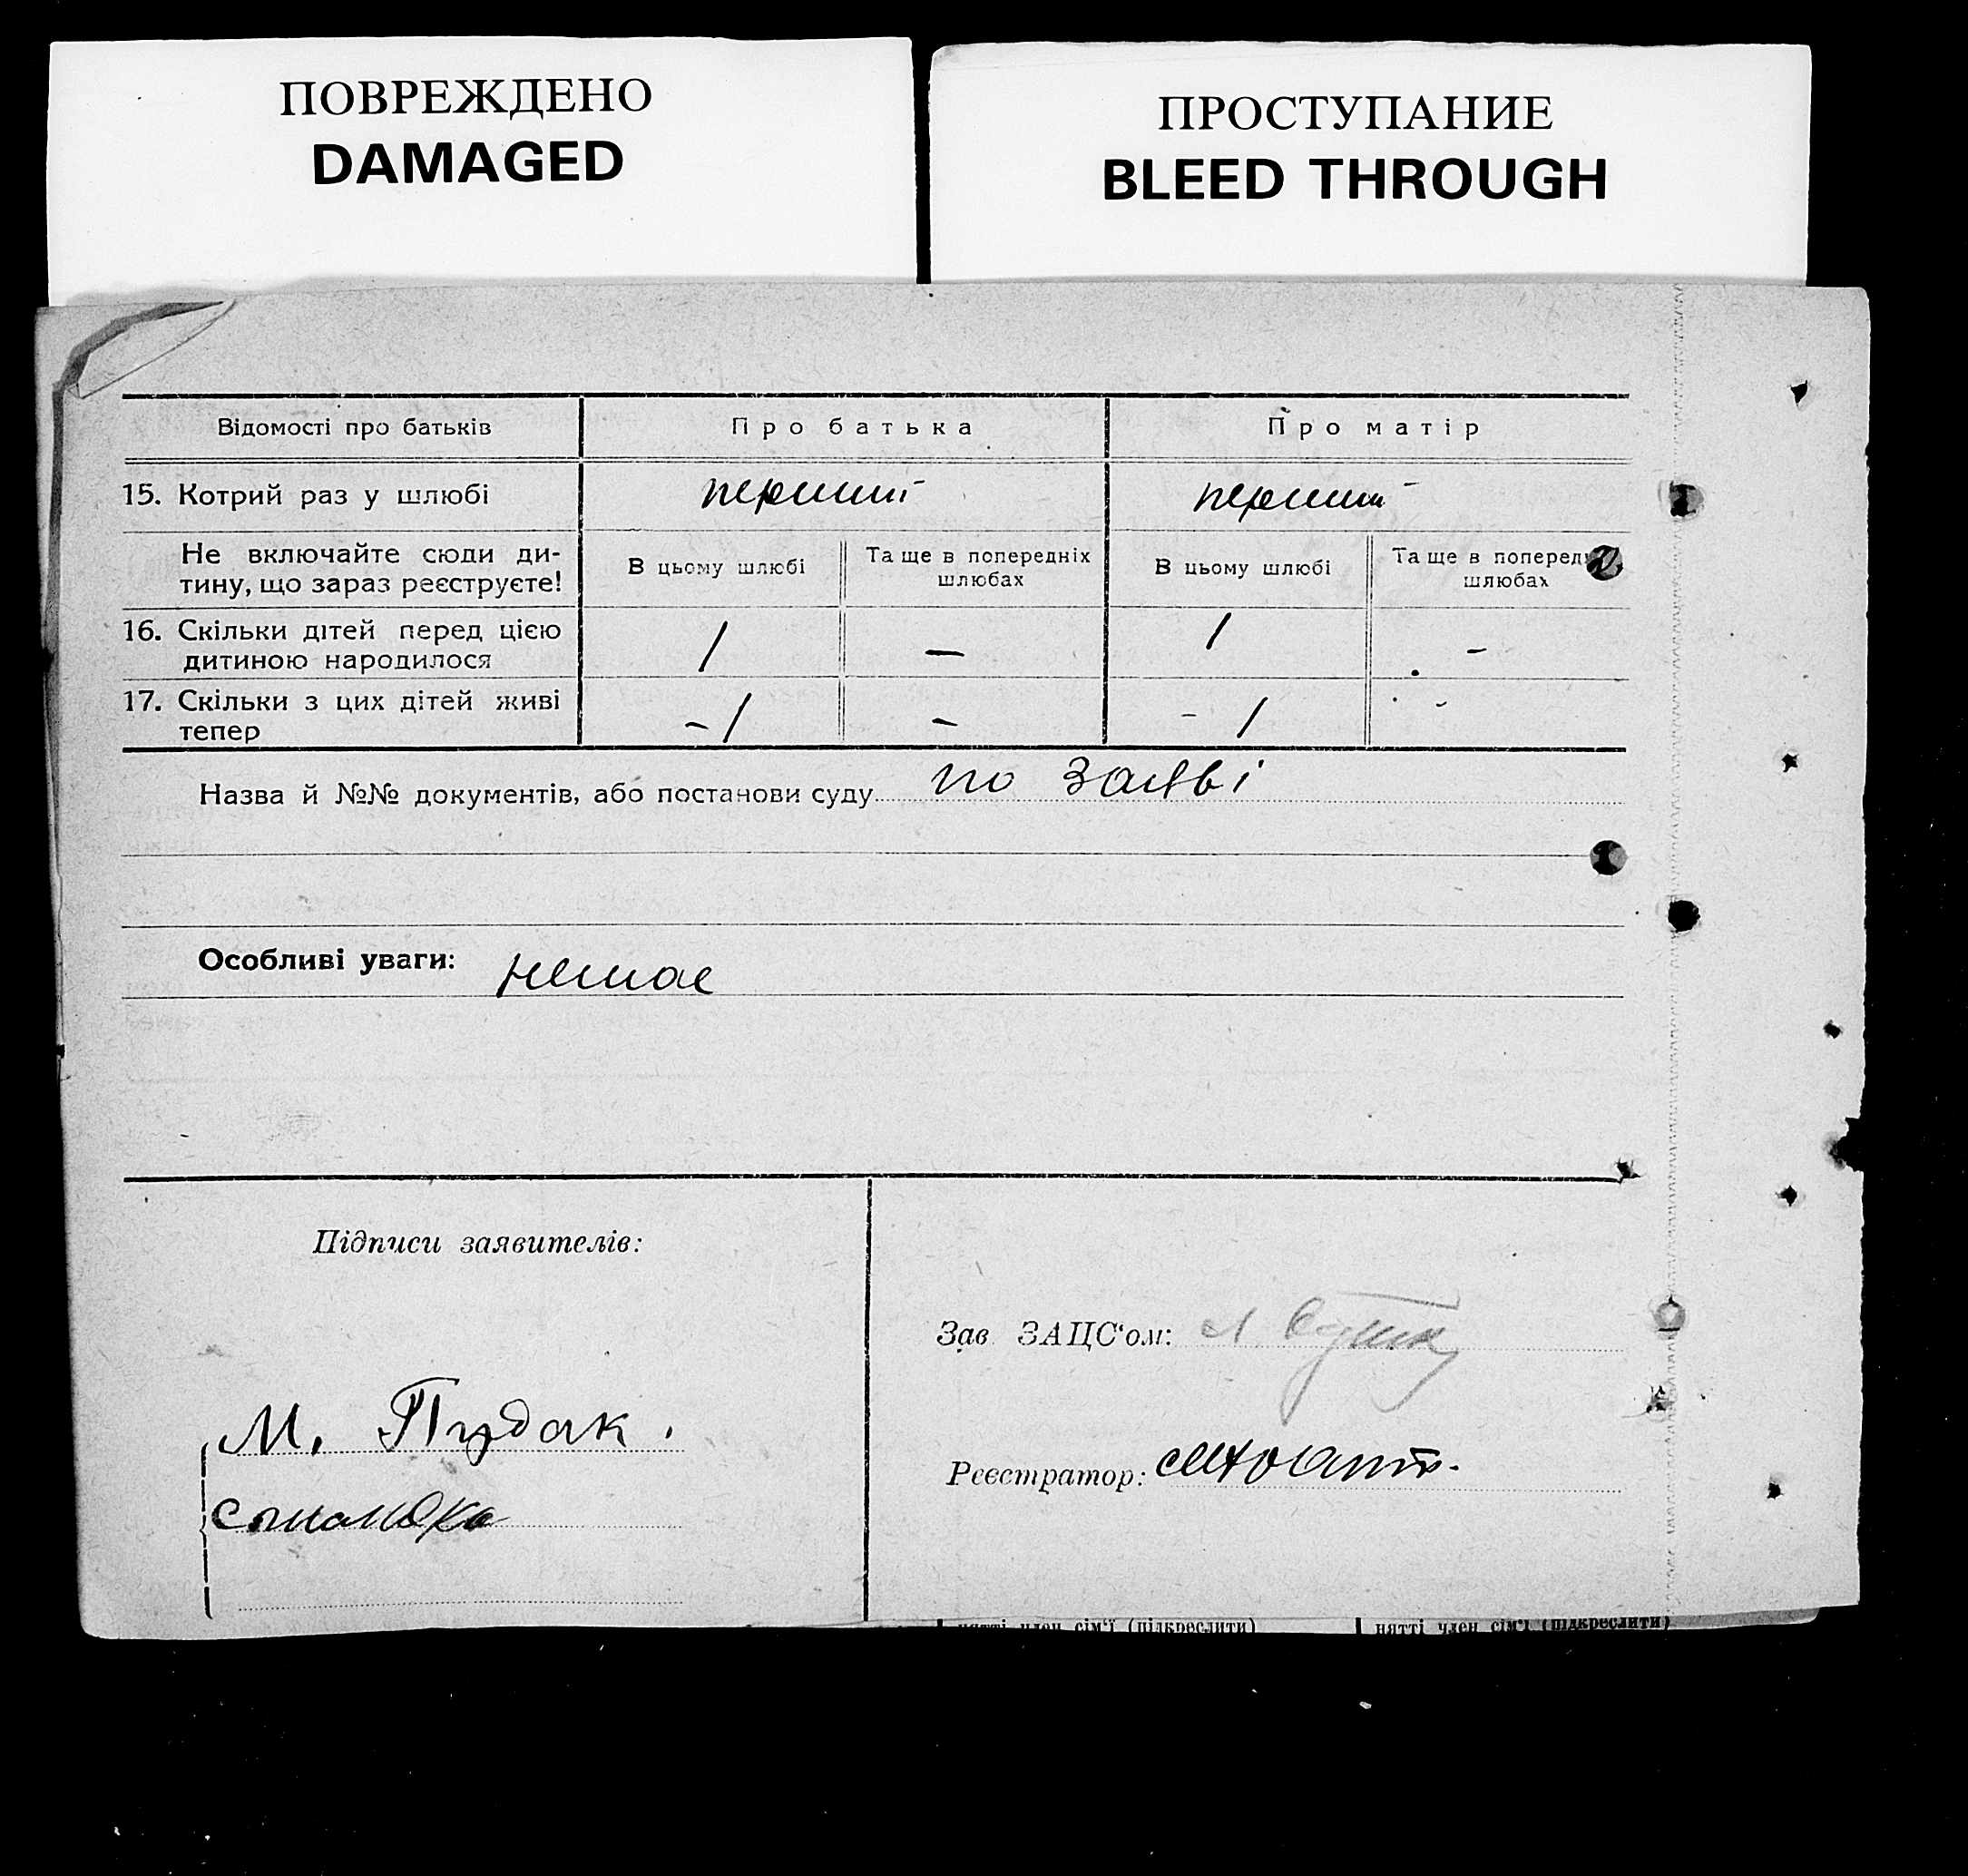 ПОВРЕЖДЕНО
DAMAGED
ПРОСТУПАНИЕ
BLEED THROUGH
Відомості про батьків
Про батька
Про матір
15. Котрий раз у шлюбі
перший
перший
Не включайте сюди ди-
тину, що зараз реєструєте!
В цьому шлюбі
Та ще в попередніх
шлюбах
В цьому шлюбі
Та ще в поперед
шлюбах
16. Скільки дітей перед цією
дитиною народилося
1
—
1
-
17. Скільки з цих дітей живі
тепер
- 1
-
- 1
-
Назва й №№ документів, або постанови суду по заяві
Особливі уваги: немає
Підписи заявителів:
М. Пудак.
Зав ЗАЦС‘ом:
Реєстратор:
нятті член сім‘ї (підкреслити)
нятті член сім‘ї (підкреслити)